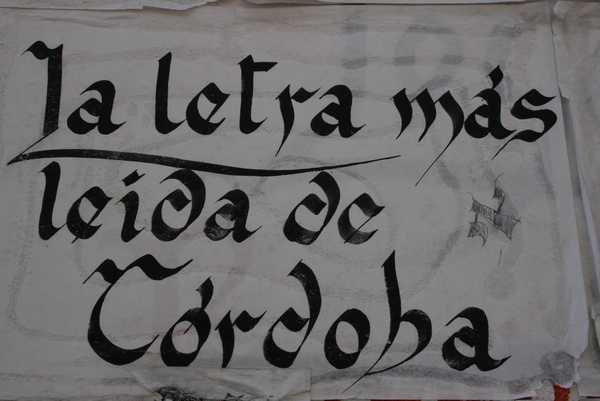 La letra más
leida de
Córdoba